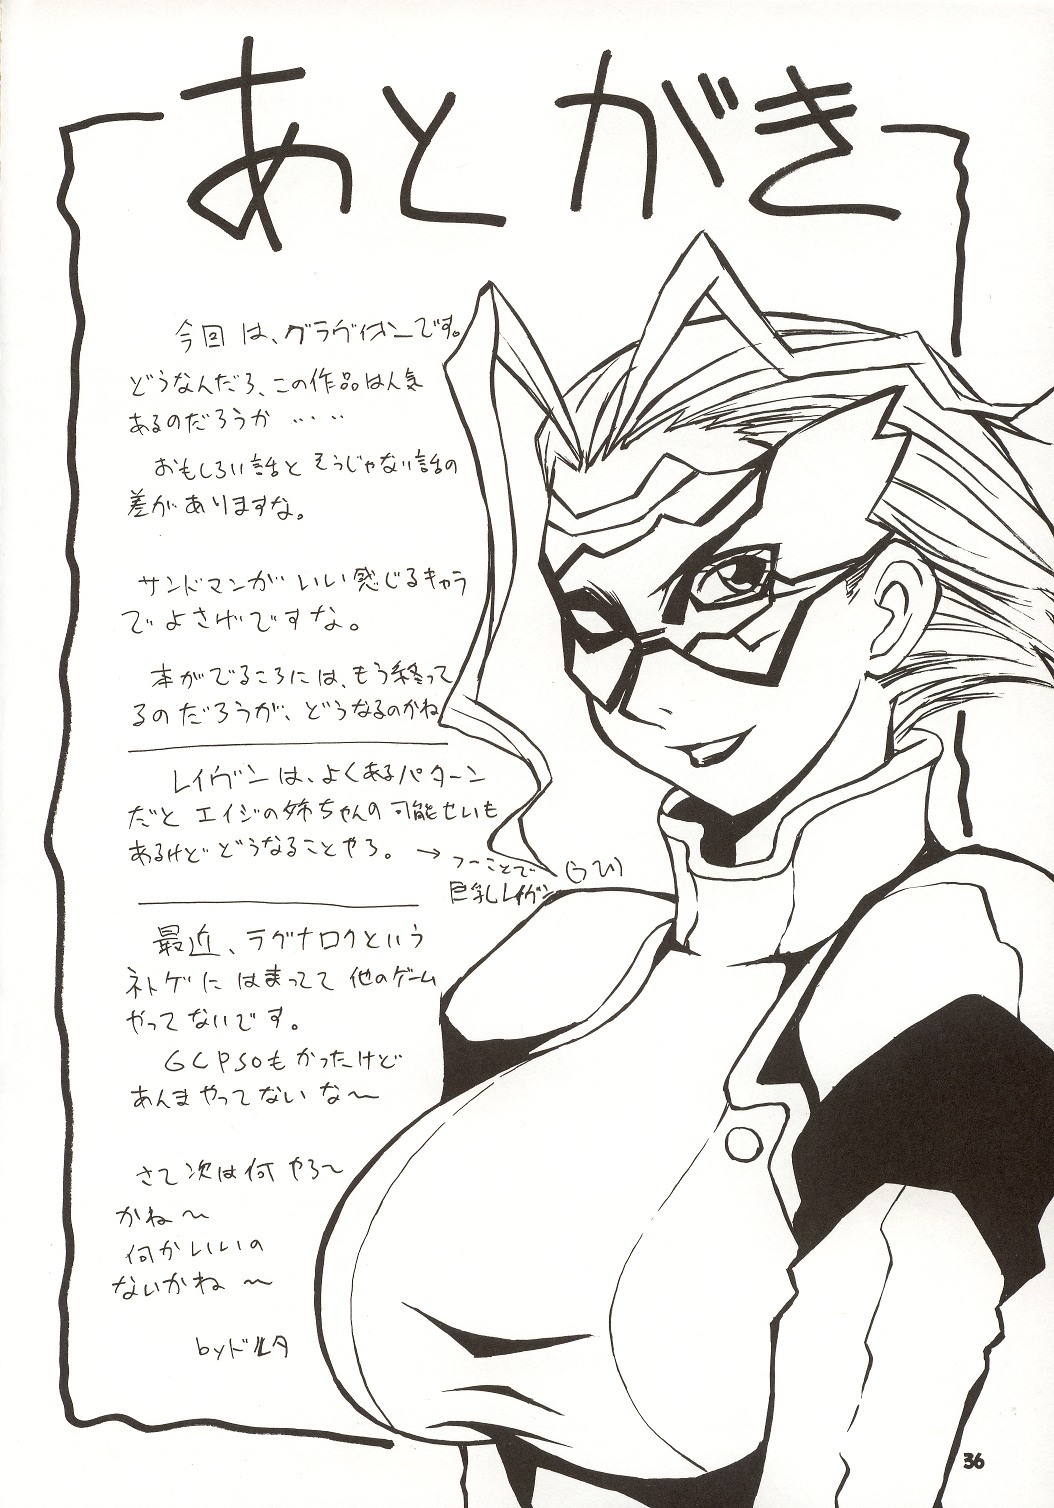 あとがき
今回は、グラヴィオンです。
どうなんだろ、この作品は人気
あるのだろうか ・・・・
おもしろい話とそうじゃない話の
差がありますな。
サンドマンがいい感じるキャラ
でよさげですな。
本がでるころには、もう終って
るのだろうが、どうなるのかね
レイヴンは、よくあるパターン
だとエイジの姉ちゃんの可能せいも
あるけどどうなることやら。→
つーことで
巨乳レイヴン
最近、ラグナロクという
ネトゲにはまってて他のゲーム
やってないです。
GCPSOもかったけど
あんまやってないな〜
さて次は何やろ〜
かね〜
何かいいの
ないかね〜
byドルタ
36